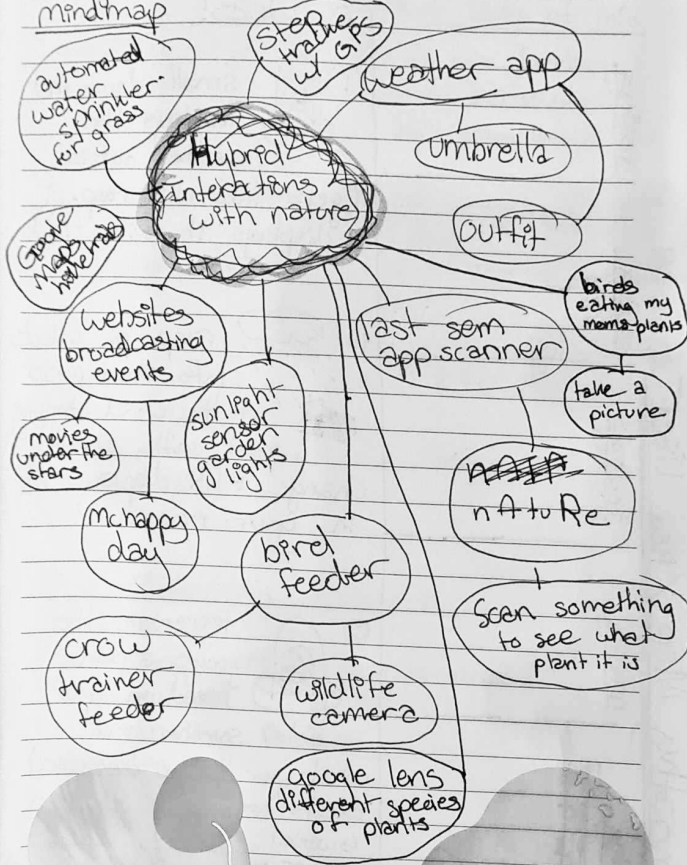 mindmap
automated
water
sprinkler
for grass
Step
tracker
w/ GPS
weather app
umbrella
outfit
Hybrid
Interactions
with nature
Google
maps
websites
broadcasting
events
movies
under the
stars
mchappy
day
sunlight
sensor
garden
lights
last sem
app scanner
nAtuRe
Scan something
to see what
plant it is
birds
eating my
moms plants
take a
picture
bird
feeder
crow
trainer
feeder
wildlife
camera
google lens
different species
of plants